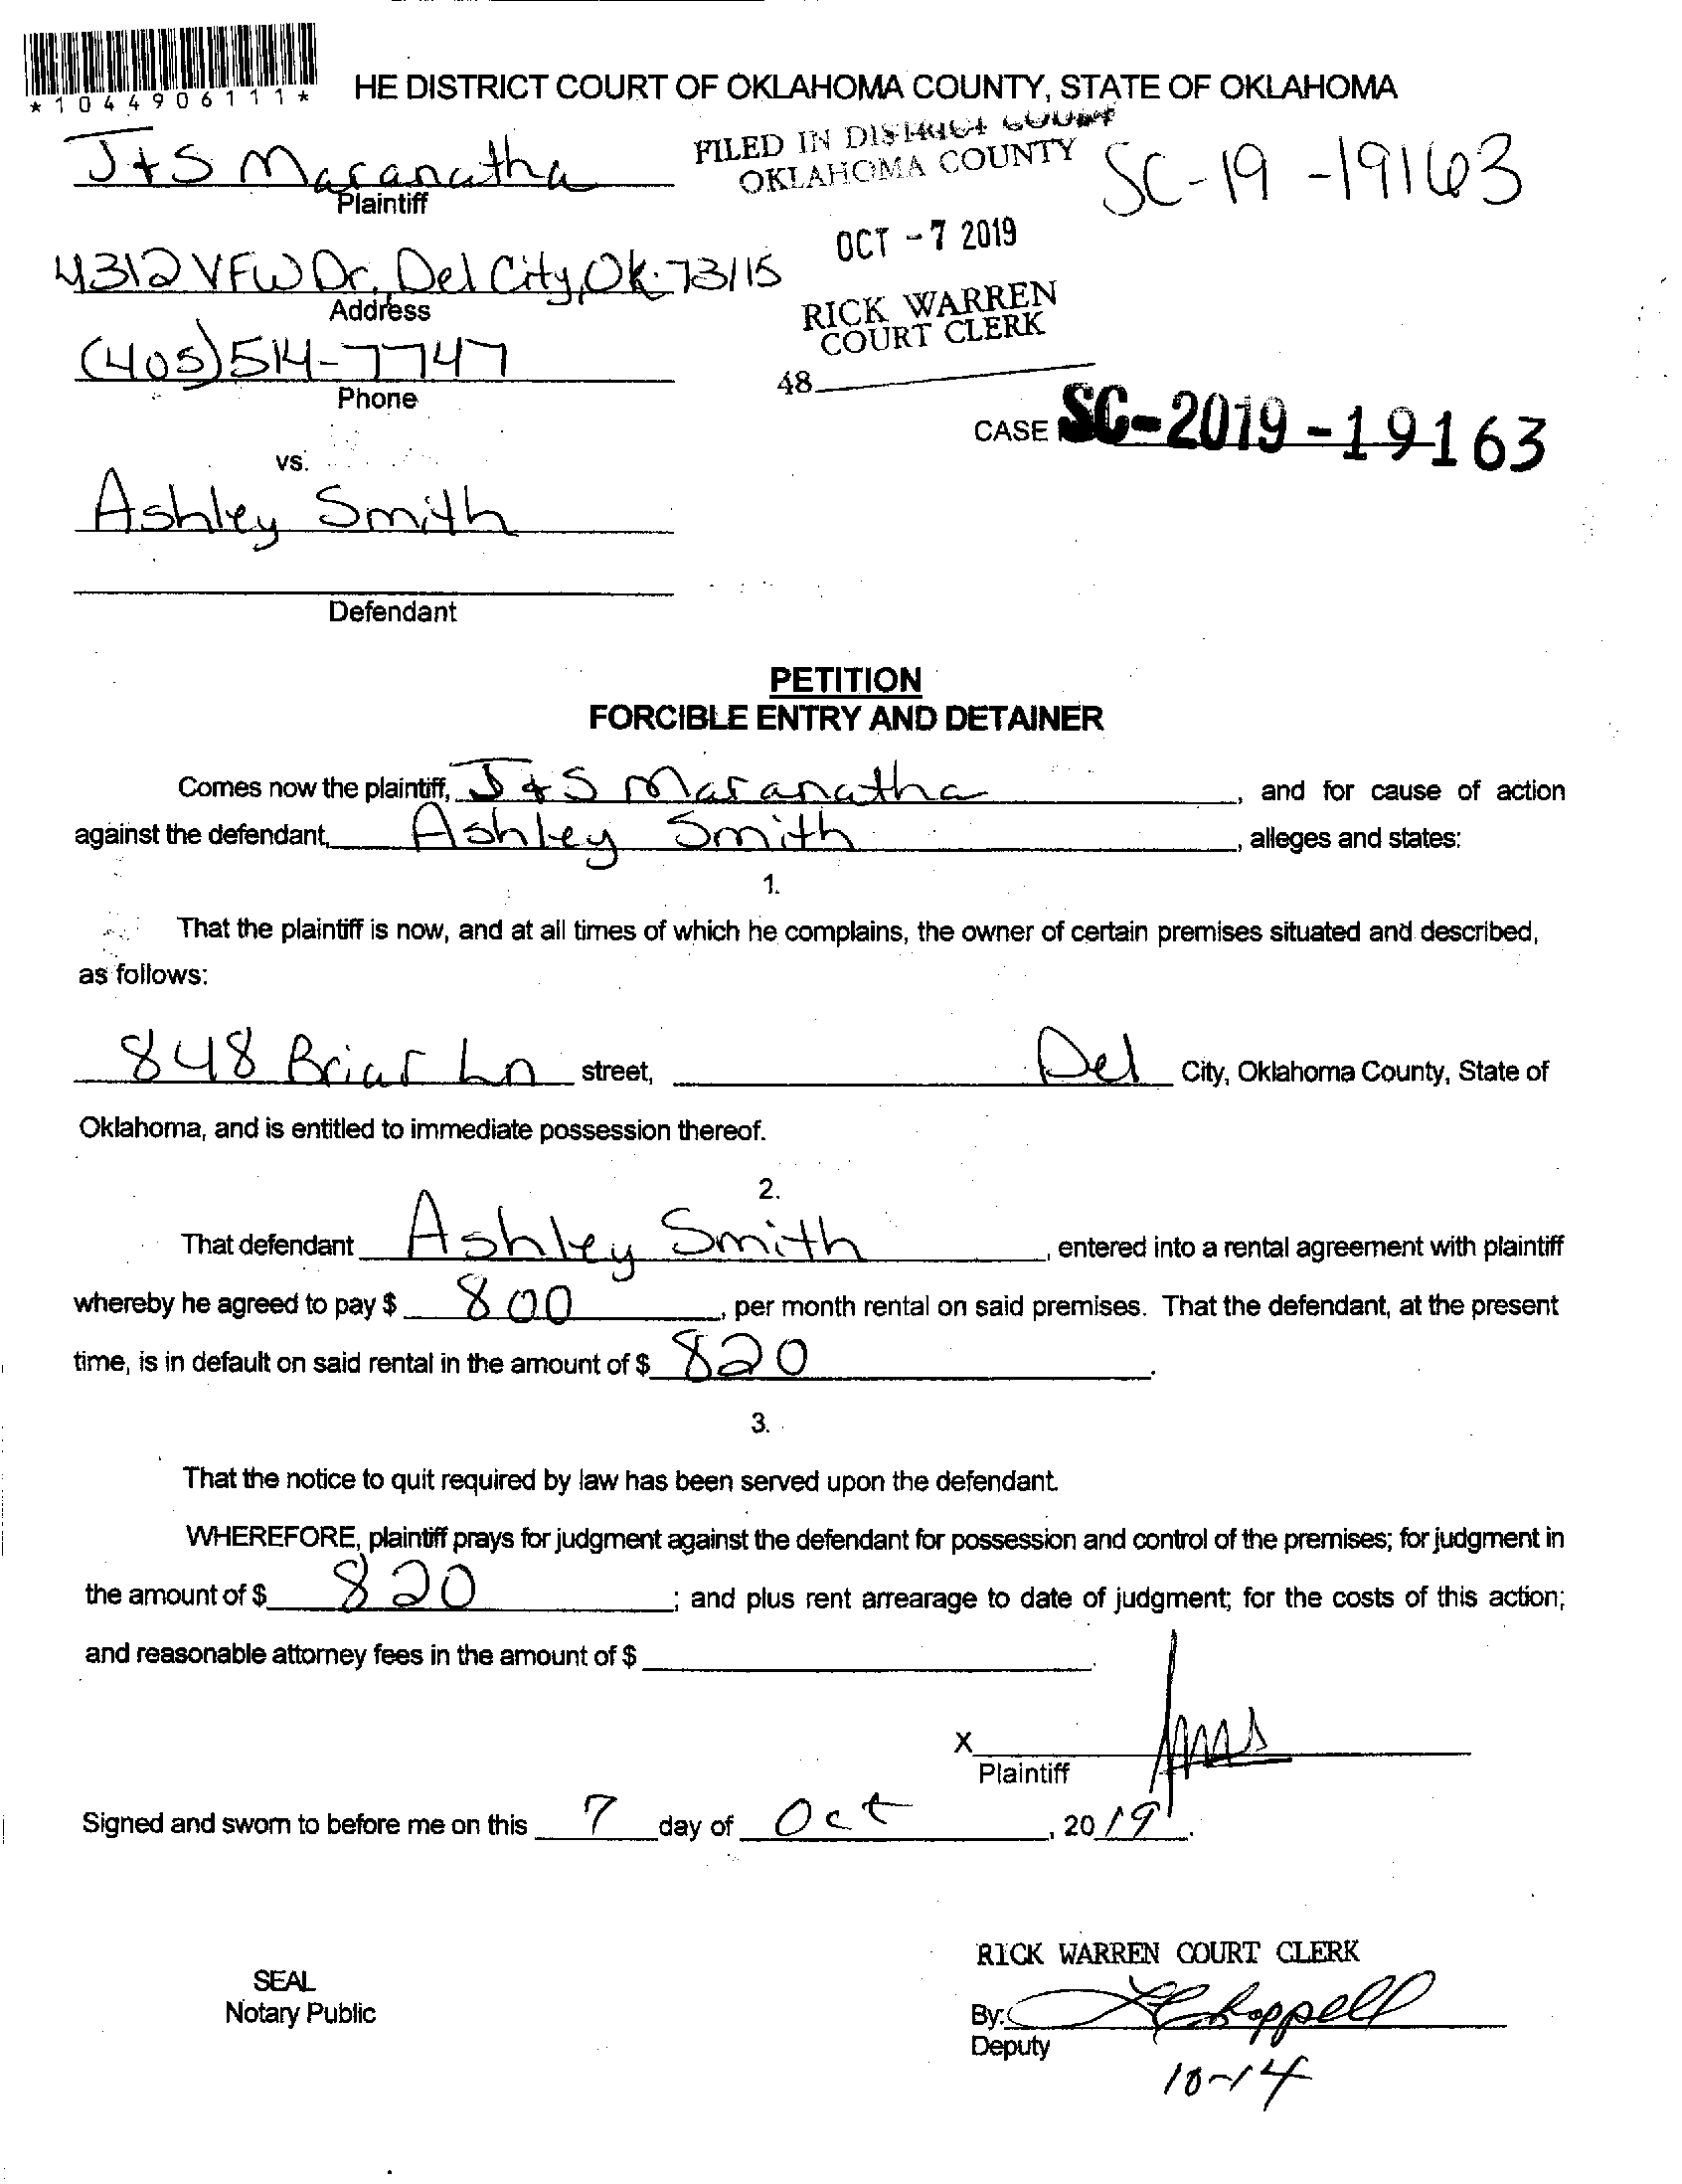 *1044906111*
HE DISTRICT COURT OF OKLAHOMA COUNTY, STATE OF OKLAHOMA
J+S Maranatha
Plaintiff
FILED IN DISTRICT COURT
OKLAHOMA COUNTY
SC-19-19163
4312 VFW Dr. Del City, Ok. 73115
Address
OCT -7 2019
(405)514-7747
Phone
RICK WARREN
COURT CLERK
48
CASE SC-2019-19163
vs.
Ashley Smith
Defendant
PETITION
FORCIBLE ENTRY AND DETAINER
Comes now the plaintiff, J+S Maranatha, and for cause of action
against the defendant, Ashley Smith, alleges and states:
1.
That the plaintiff is now, and at all times of which he complains, the owner of certain premises situated and described,
as follows:
848 Briar Ln street, Del City, Oklahoma County, State of
Oklahoma, and is entitled to immediate possession thereof.
2.
That defendant Ashley Smith, entered into a rental agreement with plaintiff
whereby he agreed to pay $ 800, per month rental on said premises. That the defendant, at the present
time, is in default on said rental in the amount of $ 820.
3.
That the notice to quit required by law has been served upon the defendant.
WHEREFORE, plaintiff prays for judgment against the defendant for possession and control of the premises; for judgment in
the amount of $ 820; and plus rent arrearage to date of judgment; for the costs of this action;
and reasonable attorney fees in the amount of $
X
Plaintiff
Signed and sworn to before me on this 7 day of Oct, 2019.
RICK WARREN COURT CLERK
SEAL
Notary Public
By: Chappell
Deputy
10-14